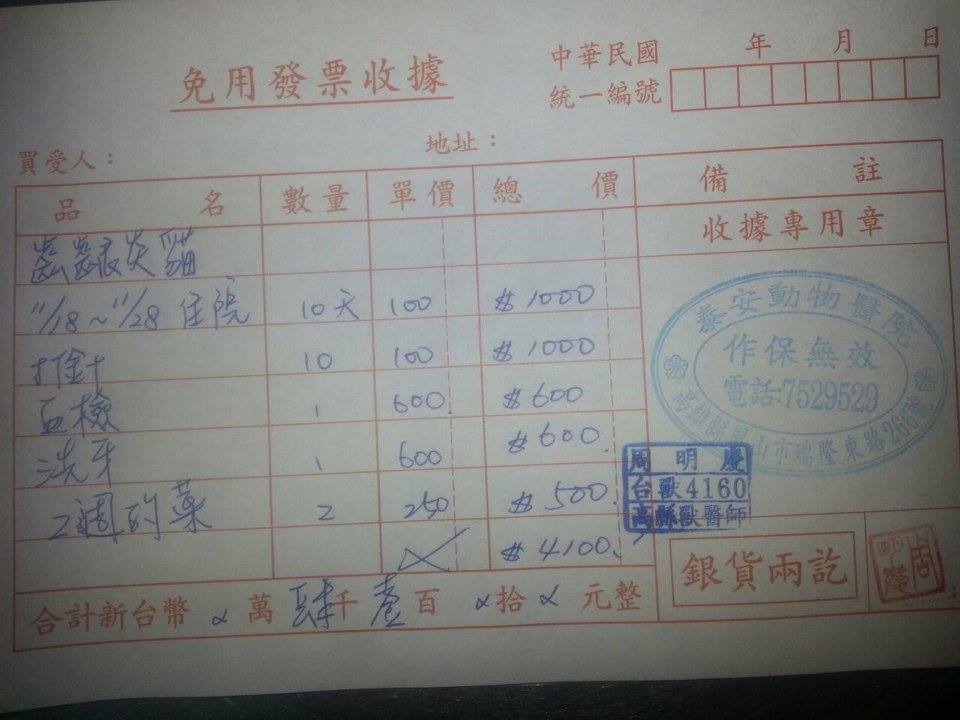 免用發票收據
中華民國 年 月 日
統一編號
買受人： 地址：
品名 數量 單價 總價 備註
收據專用章
齒齦炎貓
11/18~11/28 住院 10天 100 $1000
打針 10 100 $1000
血檢 1 600 $600
洗牙 1 600 $600
2週的藥 2 250 $500
$4100
泰安動物醫院
作保無效
電話:7529529
高雄縣鳳山市瑞隆東路268號
周明慶
台獸4160
高縣獸醫師
銀貨兩訖
合計新台幣 萬 肆千 壹百 拾 元整